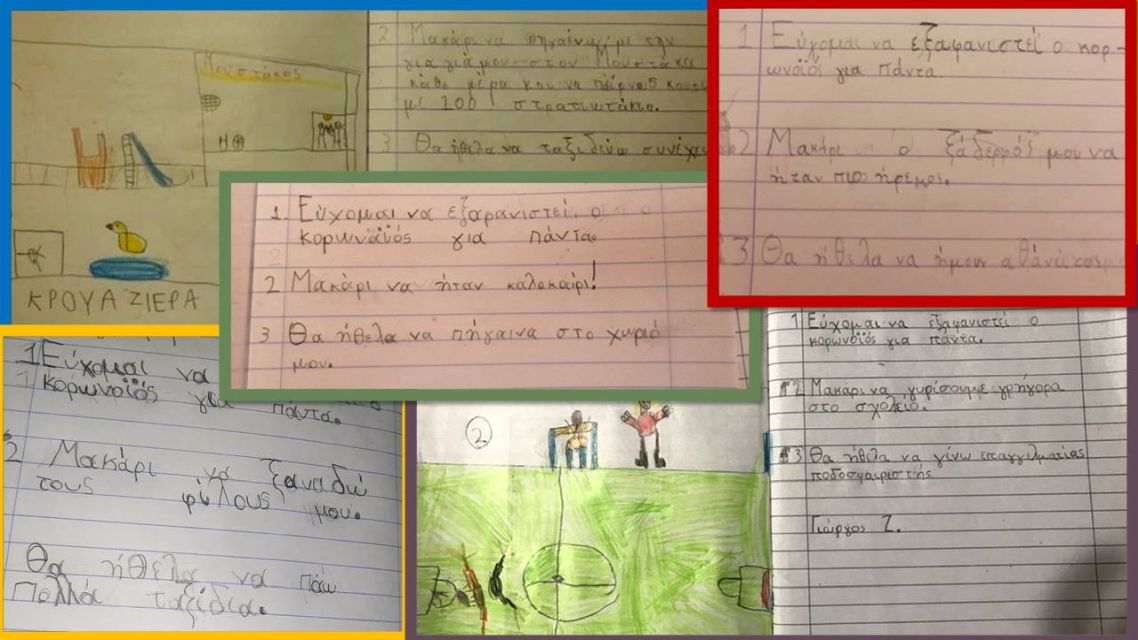 Μουστάκας
ΚΡΟΥΑΖΙΕΡΑ
2 Μακάρι να πηγαίνα με την
γιαγιά μου στον Μουστάκα
κάθε μέρα και να
με 100 στρατιωτάκια.
3 Θα ήθελα να ταξιδεύω
1 Εύχομαι να εξαφανιστεί ο κορ-
ωνοϊός για πάντα.
2 Μακάρι ο ξάδερφός μου να
ήταν πιο ήρεμος.
3 Θα ήθελα να ήμουν αθάνατος
1. Εύχομαι να εξαφανιστεί ο
κορωναϊός για πάντα.
2 Μακάρι να ήταν καλοκαίρι!
3 Θα ήθελα να πήγαινα στο χωριό
μου.
1 Εύχομαι να
κορωνοϊός για πάντα.
2 Μακάρι να ξαναδώ
τους φίλους μου.
Θα ήθελα να πάω
Πολλά ταξίδια.
2
1 Εύχομαι να εξαφανιστεί ο
κορωνοϊός για πάντα.
2 Μακάρι να γυρίσουμε γρήγορα
στο σχολείο.
3 Θα ήθελα να γίνω επαγγελματίας
ποδοσφαιριστής
Γιώργος Ζ.